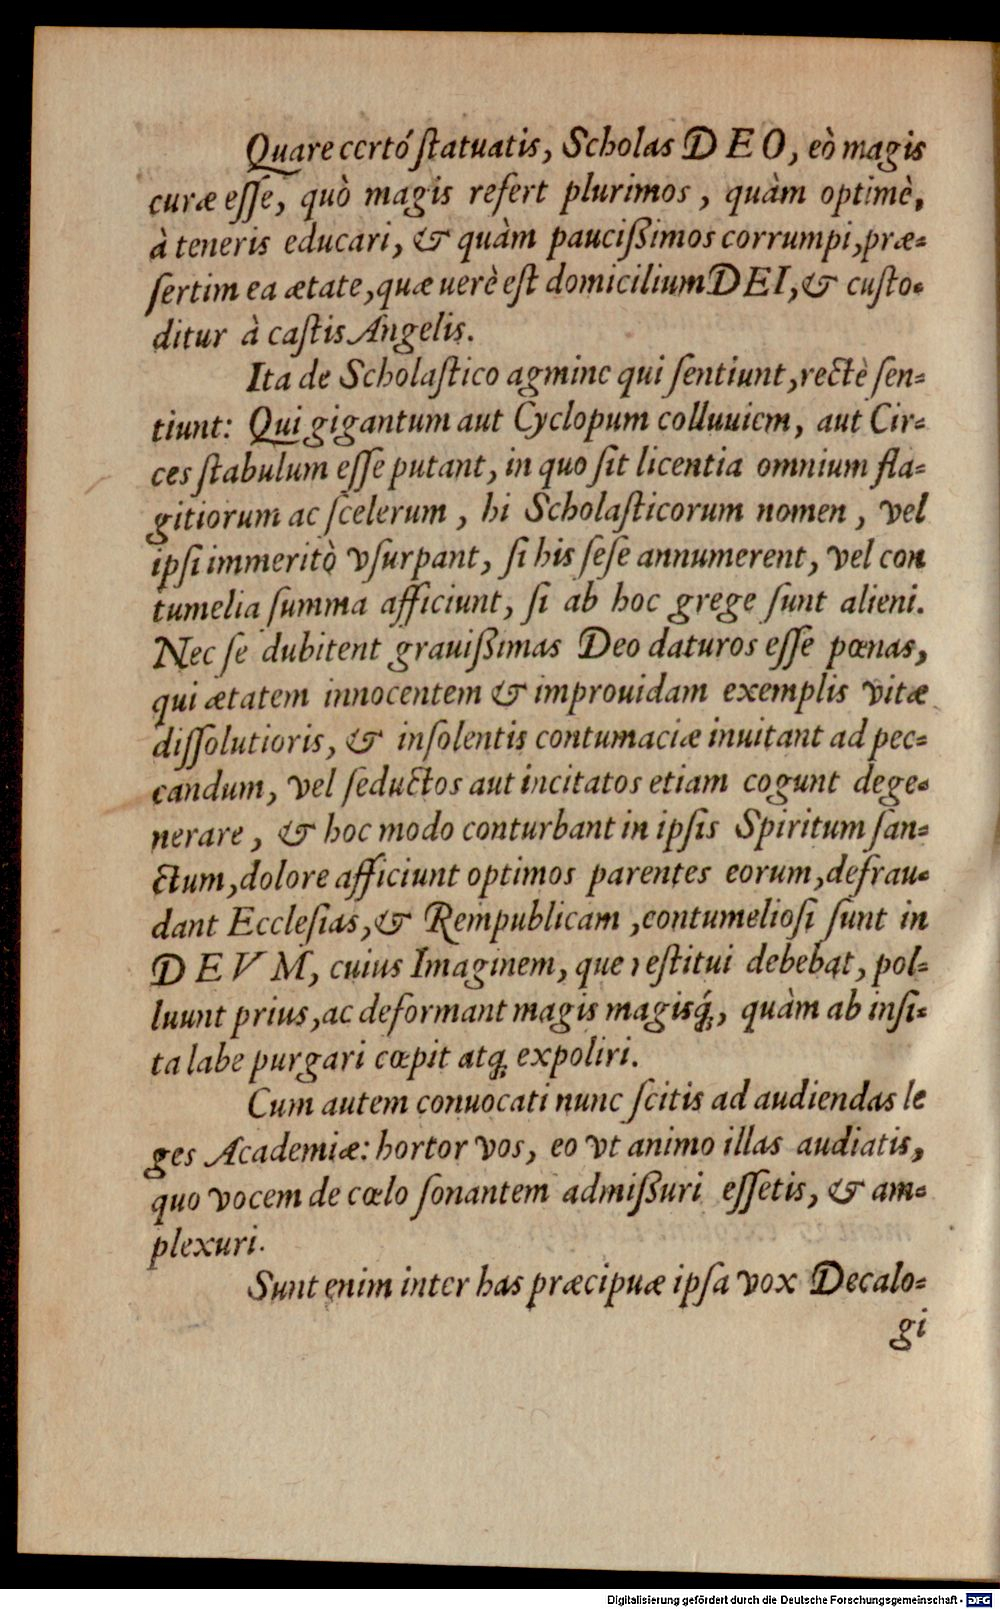 Quare certó ſtatuatis, Scholas DEO, eò magis
curæ eſſe, quò magis refert plurimos, quàm optimè,
à teneris educari, & quàm pauciſsimos corrumpi, præ=
ſertim ea ætate, quæ uerè eſt domicilium DEI, & cuſto=
ditur à caſtis Angelis.
Ita de Scholaſtico agmine qui ſentiunt, rectè ſen=
tiunt: Qui gigantum aut Cyclopum colluuiem, aut Cir=
ces ſtabulum eſſe putant, in quo ſit licentia omnium fla=
gitiorum ac ſcelerum, hi Scholaſticorum nomen, vel
ipſi immeritò vſurpant, ſi his ſeſe annumerent, vel con
tumelia ſumma afficiunt, ſi ab hoc grege ſunt alieni.
Nec ſe dubitent grauißimas Deo daturos eſſe pœnas,
qui ætatem innocentem & improuidam exemplis vitæ
diſſolutioris, & inſolentis contumaciæ inuitant ad pec=
candum, vel ſeductos aut incitatos etiam cogunt dege=
nerare, & hoc modo conturbant in ipſis Spiritum ſan=
ctum, dolore afficiunt optimos parentes eorum, defrau=
dant Eccleſias, & Rempublicam, contumelioſi ſunt in
DEVM, cuius Imaginem, que reſtitui debebat, pol=
luunt prius, ac deformant magis magisq́;, quàm ab inſi=
ta labe purgari cœpit atq; expoliri.
Cum autem conuocati nunc ſcitis ad audiendas le
ges Academiæ: hortor vos, eo vt animo illas audiatis,
quo vocem de cœlo ſonantem admißuri eſſetis, & am=
plexuri.
Sunt enim inter has præcipuæ ipſa vox Decalo=
gi
Digitalisierung gefördert durch die Deutsche Forschungsgemeinschaft - DFG